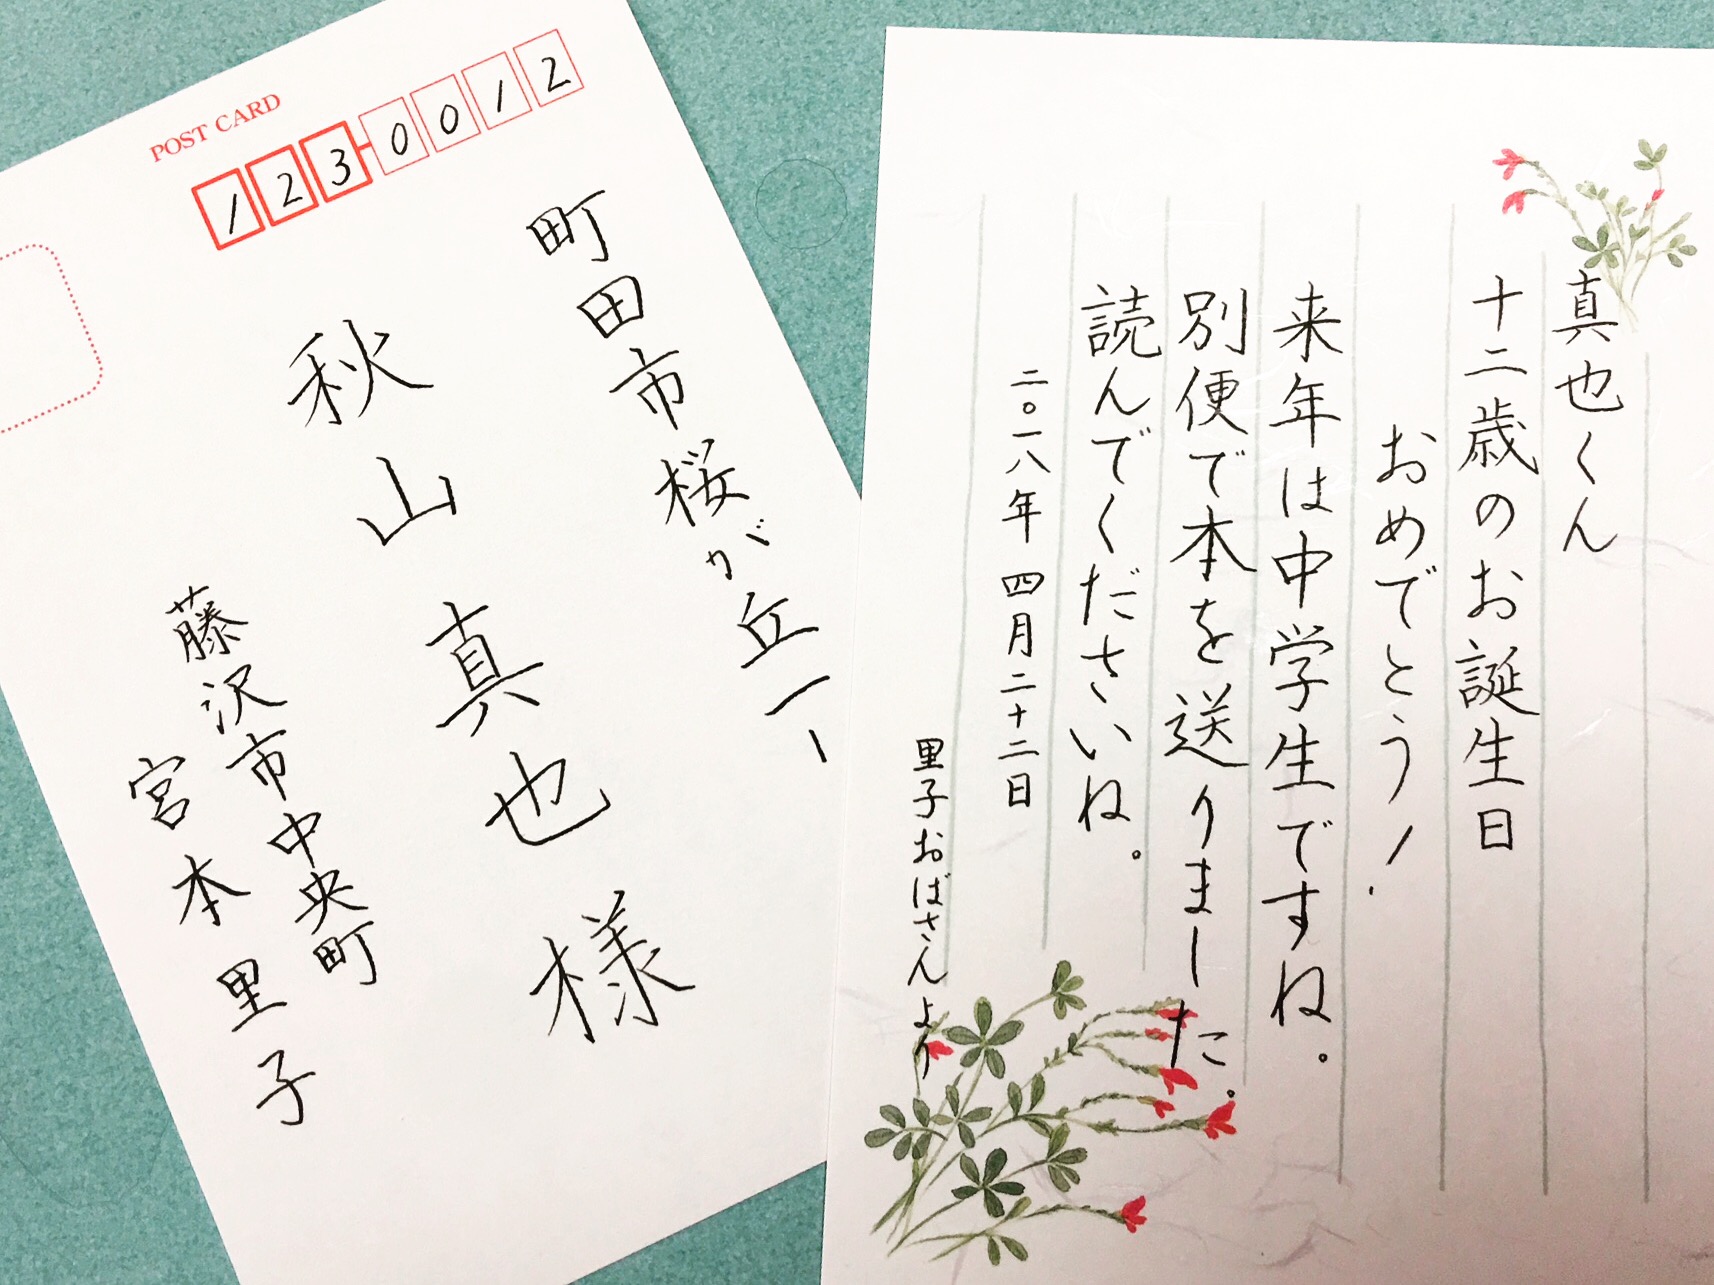 POST CARD
1230012
町田市桜が丘一ー
秋山真也様
藤沢市中央町
宮本里子
真也くん
十二歳のお誕生日
おめでとう!
来年は中学生ですね。
別便で本を送りました。
読んでくださいね。
二〇一八年 四月二十二日
里子おばさんより